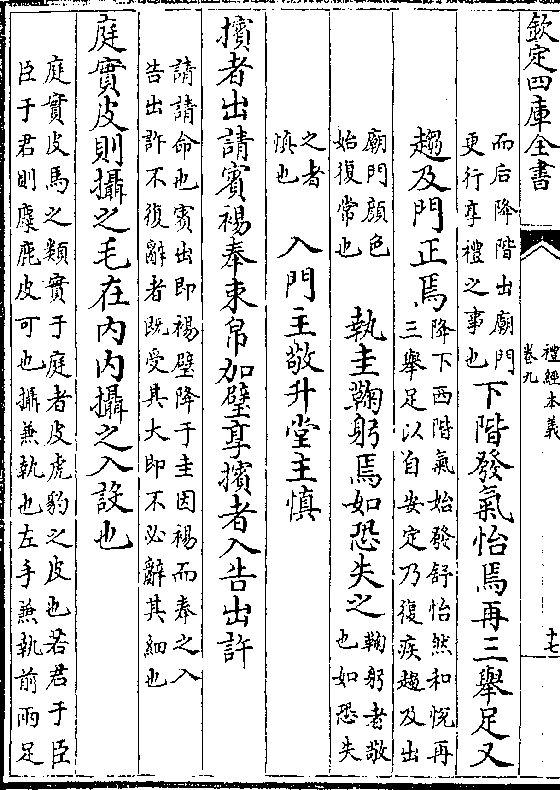 欽定四庫全書
禮經本義
卷九
十七
而后降階出廟門
更行享禮之事也
下階發氣怡焉再三舉足又
趨及門正焉
降下西階氣始發舒怡然和悅再
三舉足以自安定乃復疾趨及出
廟門顔色
始復常也
執圭鞠躬焉如恐失之
鞠躬者敬
也如恐失
之者
慎也
入門主敬升堂主慎
擯者出請賓裼奉束帛加璧享擯者入告出許
請請命也賓出即裼璧降于圭因裼而奉之入
告出許不復辭者既受其大即不必辭其細也
庭實皮則攝之毛在内内攝之入設也
庭實皮馬之類實于庭者皮虎豹之皮也若君于臣
臣于君則麋鹿皮可也攝兼執也左手兼執前兩足